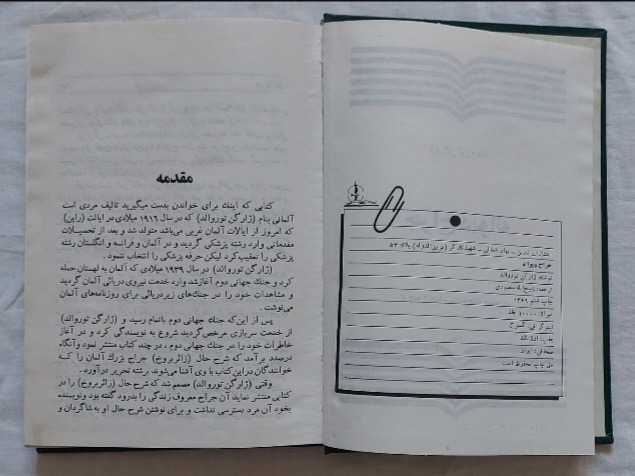 انتشارات زرین - بهار شمالی - شهید کارگر (مزین الدوله) پلاک ۵۳
جراح دیوانه
نوشته: ژارگن توروالد
ترجمه: ذبیح اله منصوری
چاپ ششم ۱۳۶۹
تیراژ ۱۰۰۰۰ جلد
لیتوگرافی:
چاپ:
صحافی: ایران
حق چاپ محفوظ است
مقدمه
کتابی که اینك برای خواندن بدست میگیرید تالیف مردی است
آلمانی بنام (ژارگن توروالد) که در سال ۱۹۱۶ میلادی در ایالت (راین)
که امروز از ایالات آلمان غربی می‌باشد متولد شد و بعد از تحصیلات
مقدماتی وارد رشته پزشکی گردید و در آلمان و فرانسه و انگلستان رشته
پزشکی را تعقیب کرد لیکن حرفه پزشکی را انتخاب ننمود.
(ژارگن توروالد) در سال ۱۹۳۹ میلادی که آلمان به لهستان حمله
کرد و جنگ جهانی دوم آغاز شد وارد خدمت نیروی دریائی آلمان گردید
و مشاهدات خود را در جنك‌های زیردریائی برای روزنامه‌های آلمان
می‌نوشت.
پس از این‌که جنك جهانی دوم باتمام رسید و (ژارگن توروالد)
از خدمت سربازی مرخص گردید شروع به نویسندگی کرد و در آغاز
خاطرات خود را در جنك جهانی دوم، در چند کتاب منتشر نمود وآنگاه
درصدد برآمد که شرح حال (زائربروخ) جراح بزرك آلمان را کـه
خوانندگان در این کتاب با وی آشنا می‌شوند برشته تحریر درآورد.
وقتی (ژارگن توروالد) مصمم شد که شرح حال (زائربروخ) را در
کتابی منتشر نماید آن جراح معروف زندگی را بدرود گفته بود ونویسنده
بخود آن مرد دسترسی نداشت و برای نوشتن شرح حال او به شاگردان و